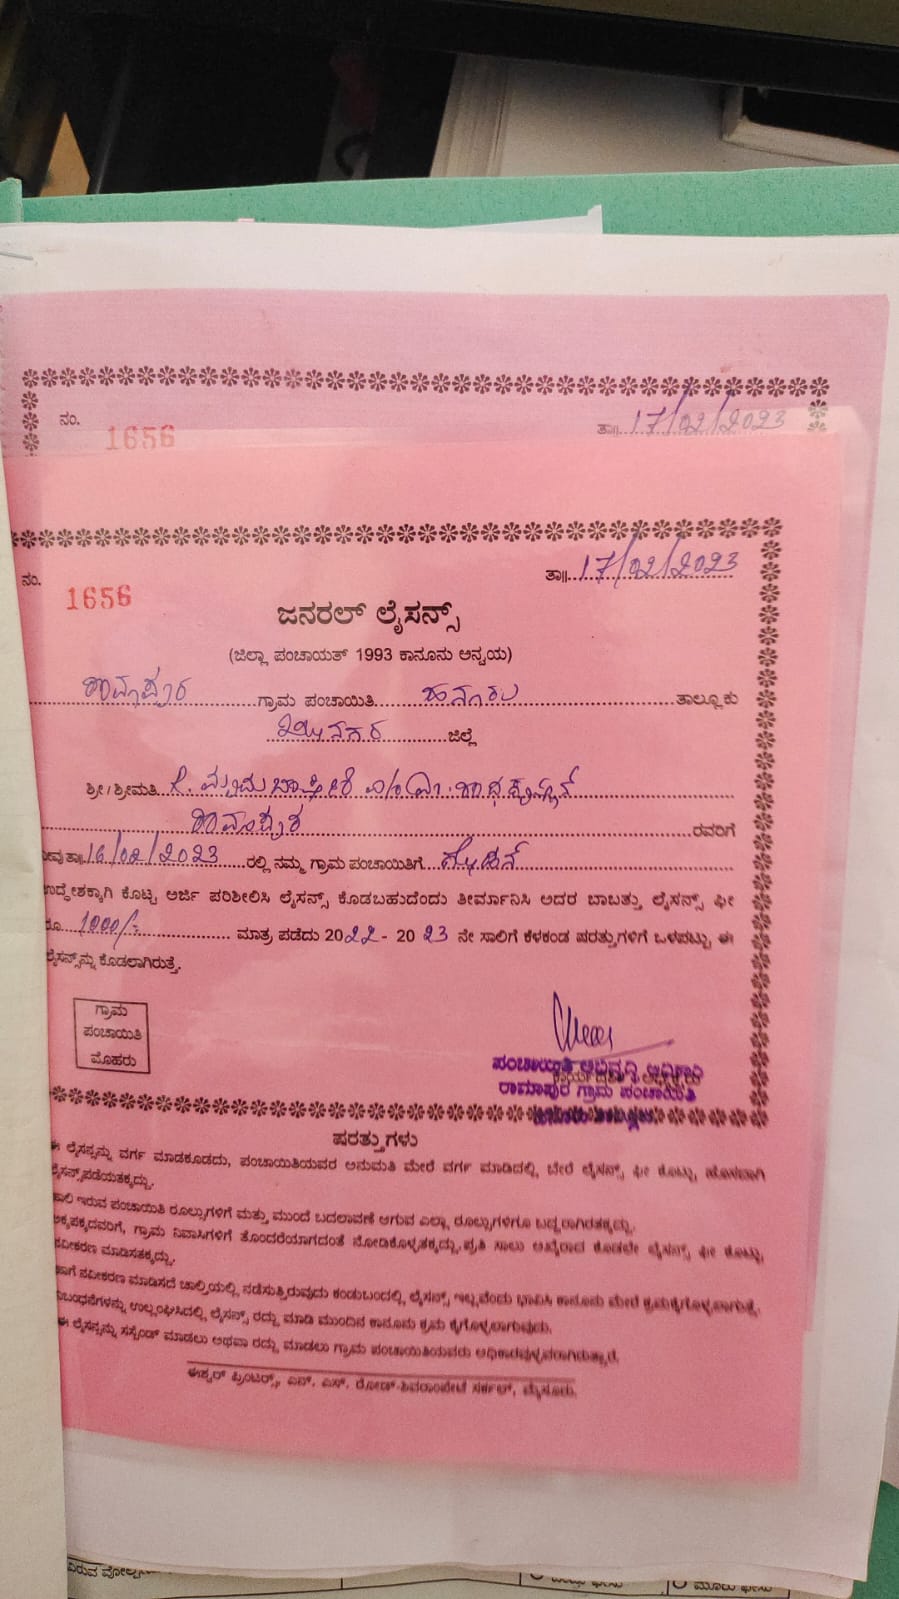 ನಂ. 1656 ತಾ॥ 17/02/2023
ನಂ. 1656 ತಾ॥ 17/02/2023
ಜನರಲ್ ಲೈಸನ್ಸ್
(ಜಿಲ್ಲಾ ಪಂಚಾಯತ್ 1993 ಕಾನೂನು ಅನ್ವಯ)
ರಾಮಾಪುರ ಗ್ರಾಮ ಪಂಚಾಯಿತಿ ಹನೂರು ತಾಲ್ಲೂಕು
ಜಿಲ್ಲೆ
ಶ್ರೀ/ಶ್ರೀಮತಿ
ರಾಮಾಪುರ ರವರಿಗೆ
ತಾ॥ 16/02/2023 ರಲ್ಲಿ ನಮ್ಮ ಗ್ರಾಮ ಪಂಚಾಯಿತಿಗೆ
ಉದ್ದೇಶಕ್ಕಾಗಿ ಕೊಟ್ಟ ಅರ್ಜಿ ಪರಿಶೀಲಿಸಿ ಲೈಸನ್ಸ್ ಕೊಡಬಹುದೆಂದು ತೀರ್ಮಾನಿಸಿ ಅದರ ಬಾಬತ್ತು ಲೈಸನ್ಸ್ ಫೀ
ರೂ. 1000/- ಮಾತ್ರ ಪಡೆದು 2022 - 2023 ನೇ ಸಾಲಿಗೆ ಕೆಳಕಂಡ ಷರತ್ತುಗಳಿಗೆ ಒಳಪಟ್ಟು ಈ
ಲೈಸನ್ಸ್‌ನ್ನು ಕೊಡಲಾಗಿರುತ್ತೆ.
ಗ್ರಾಮ
ಪಂಚಾಯಿತಿ
ಮೊಹರು
ಪಂಚಾಯಿತಿ ಅಭಿವೃದ್ಧಿ ಅಧಿಕಾರಿ
ರಾಮಾಪುರ ಗ್ರಾಮ ಪಂಚಾಯಿತಿ
ಷರತ್ತುಗಳು
ಈ ಲೈಸನ್ಸನ್ನು ವರ್ಗ ಮಾಡಕೂಡದು, ಪಂಚಾಯಿತಿಯವರ ಅನುಮತಿ ಮೇರೆ ವರ್ಗ ಮಾಡಿದಲ್ಲಿ ಬೇರೆ ಲೈಸನ್ಸ್ ಫೀ ಕೊಟ್ಟು, ಹೊಸದಾಗಿ
ಲೈಸನ್ಸ್ ಪಡೆಯತಕ್ಕದ್ದು.
ಹಾಲಿ ಇರುವ ಪಂಚಾಯಿತಿ ರೂಲ್ಸುಗಳಿಗೆ ಮತ್ತು ಮುಂದೆ ಬದಲಾವಣೆ ಆಗುವ ಎಲ್ಲಾ ರೂಲ್ಸುಗಳಿಗೂ ಬದ್ಧರಾಗಿರತಕ್ಕದ್ದು.
ಅಕ್ಕಪಕ್ಕದವರಿಗೆ, ಗ್ರಾಮ ನಿವಾಸಿಗಳಿಗೆ ತೊಂದರೆಯಾಗದಂತೆ ನೋಡಿಕೊಳ್ಳತಕ್ಕದ್ದು. ಪ್ರತಿ ಸಾಲು ಲೈಸನ್ಸ್ ಫೀ ಕೊಟ್ಟು,
ನವೀಕರಣ ಮಾಡಿಸತಕ್ಕದ್ದು.
ಹಾಗೆ ನವೀಕರಣ ಮಾಡಿಸದೆ ಚಾಲ್ತಿಯಲ್ಲಿ ನಡೆಸುತ್ತಿರುವುದು ಕಂಡುಬಂದಲ್ಲಿ ಲೈಸನ್ಸ್ ಇಲ್ಲವೆಂದು ಭಾವಿಸಿ ಕಾನೂನು ಮೇರೆ ಕ್ರಮಕೈಗೊಳ್ಳಲಾಗುತ್ತೆ.
ನಿಬಂಧನೆಗಳನ್ನು ಉಲ್ಲಂಘಿಸಿದಲ್ಲಿ ಲೈಸನ್ಸ್ ರದ್ದು ಮಾಡಿ ಮುಂದಿನ ಕಾನೂನು ಕ್ರಮ ಕೈಗೊಳ್ಳಲಾಗುವುದು.
ಈ ಲೈಸನ್ಸನ್ನು ಸಸ್ಪೆಂಡ್ ಮಾಡಲು ಅಥವಾ ರದ್ದು ಮಾಡಲು ಗ್ರಾಮ ಪಂಚಾಯಿತಿಯವರು ಅಧಿಕಾರವುಳ್ಳವರಾಗಿರುತ್ತಾರೆ.
ಈಶ್ವರ್ ಪ್ರಿಂಟರ್ಸ್, ಎನ್. ಎಸ್. ರೋಡ್-ಶಿವರಾಂಪೇಟೆ ಸರ್ಕಲ್, ಮೈಸೂರು.